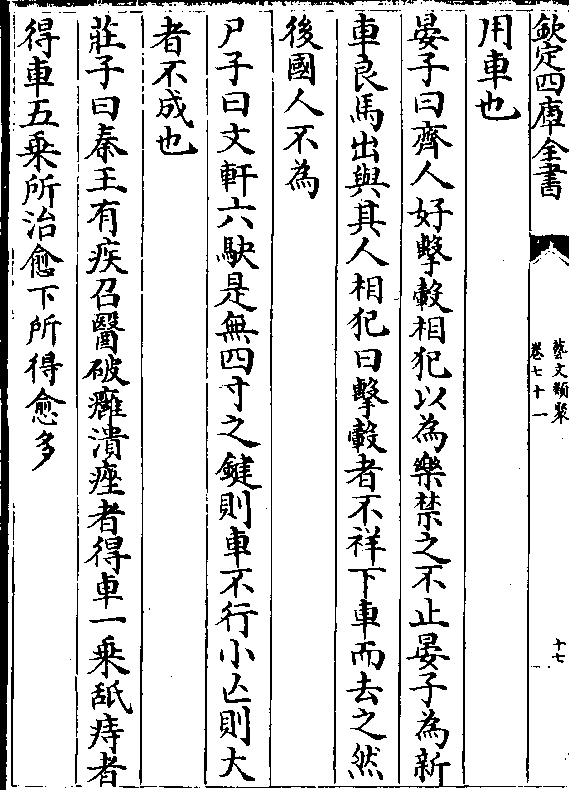 欽定四庫全書
藝文類聚
卷七十一
十七
用車也
晏子曰齊人好擊轂相犯以為樂禁之不止晏子為新
車良馬出與其人相犯曰擊轂者不祥下車而去之然
後國人不為
尸子曰文軒六駃是無四寸之鍵則車不行小亡則大
者不成也
莊子曰秦王有疾召醫破癰潰痤者得車一乗舐痔者
得車五乗所治愈下所得愈多